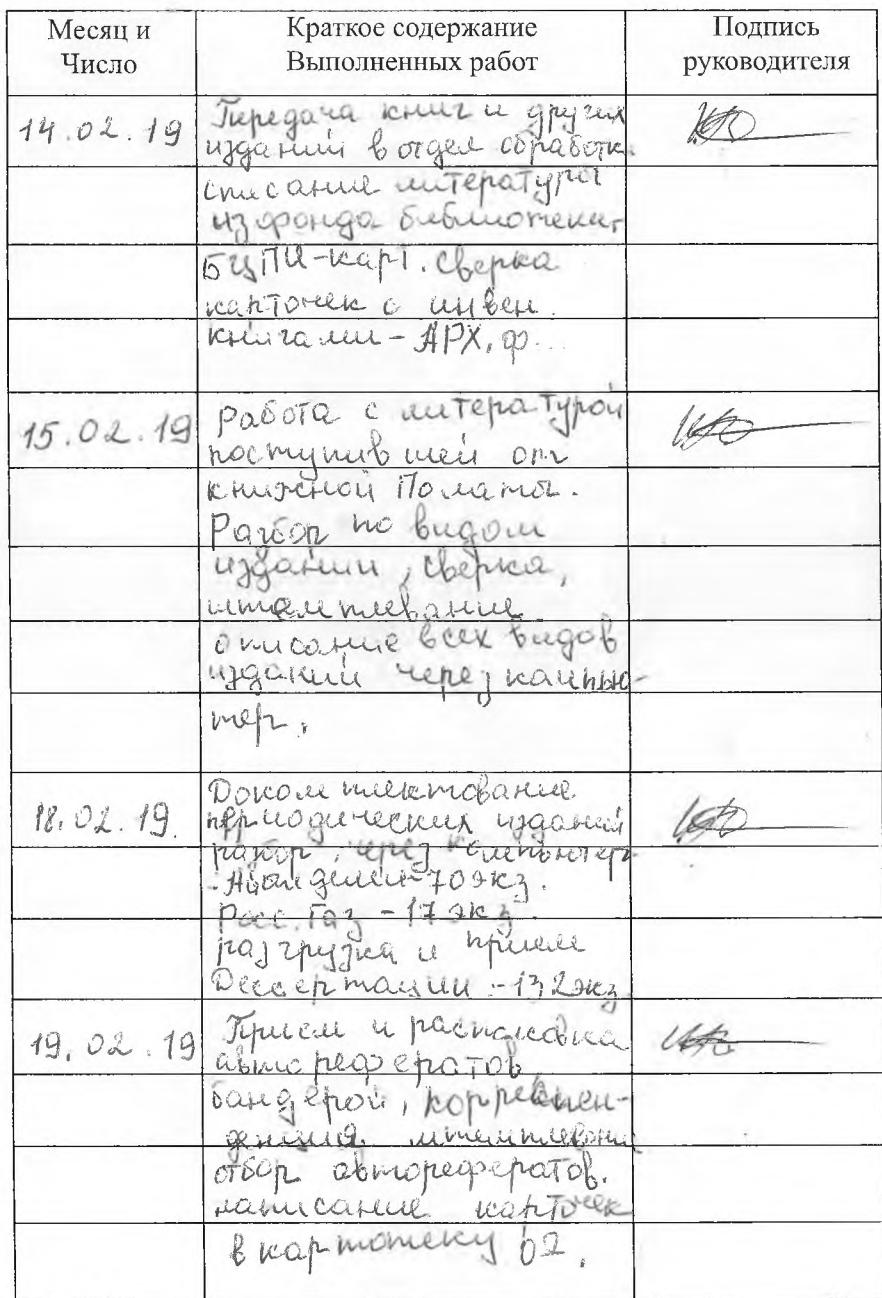 Месяц и Число
Краткое содержание Выполненных работ
Подпись руководителя
14.02.19
Передача книг и других
изданий в отдел обработк.
списание литературы
из фонда библиотеки,
БЦПИ-карт. сверка
карточек с инвен.
книгами - АРХ. ф.
15.02.19
Работа с литературой
поступившей от
книжной Полаты.
Разбор по видом
издании, сверка,
штемплевание
описание всех видов
изданий через компью-
тер.
18.02.19.
Докомплектование
периодических изданий
через компьютер
70 экз.
Росс. Газ - 17 экз.
разгрузка и прием
Дессертации - 132 экз
19.02.19
Прием и распаковка
авторефератов,
бандерой, корреспен-
денция. штемплевани
отбор авторефератов.
написание карточек
в картотеку 02.